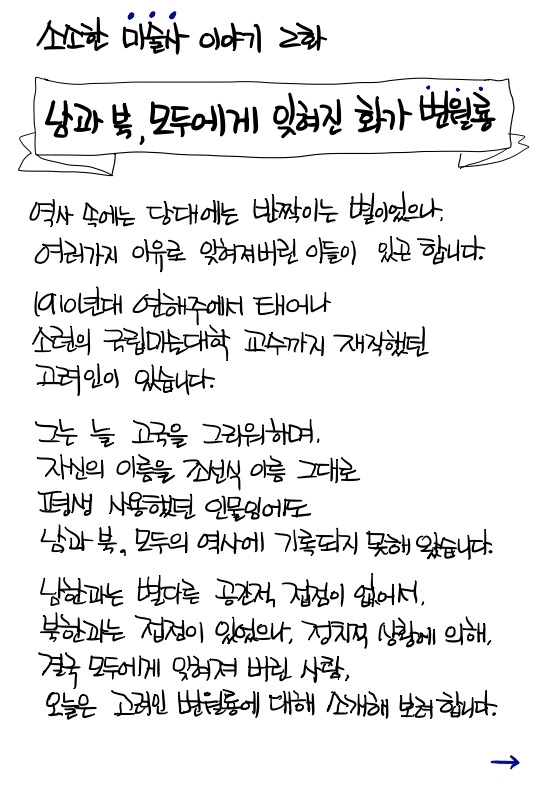 소소한 미술사 이야기 2화
남과 북, 모두에게 잊혀진 화가 변월룡
역사 속에는 당대에는 반짝이는 별이었으나,
여러가지 이유로 잊혀져버린 이들이 있곤 합니다.
1910년대 연해주에서 태어나
소련의 국립미술대학 교수까지 재직했던
고려인이 있습니다.
그는 늘 고국을 그리워하며,
자신의 이름을 조선식 이름 그대로
평생 사용했던 인물임에도
남과 북, 모두의 역사에 기록되지 못해 왔습니다.
남한과는 별다른 공간적 접점이 없어서,
북한과는 접점이 있었으나, 정치적 상황에 의해,
결국 모두에게 잊혀져 버린 사람,
오늘은 고려인 변월룡에 대해 소개해 보려 합니다.
→